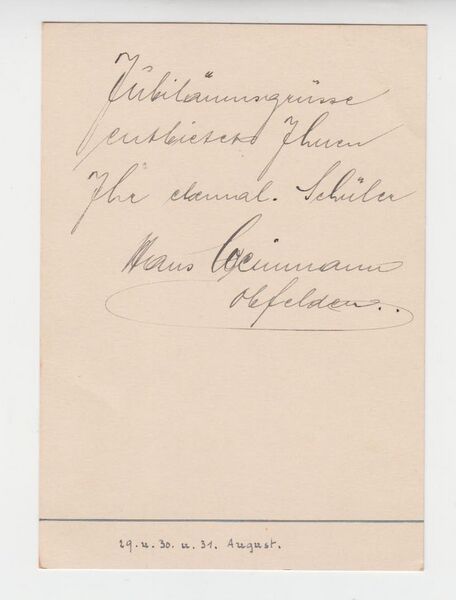 Jubiläumsgrüsse
entbietet Ihnen
Ihr ehemal. Schüler
Hans
Obfelden..
29. u. 30. u. 31. August.